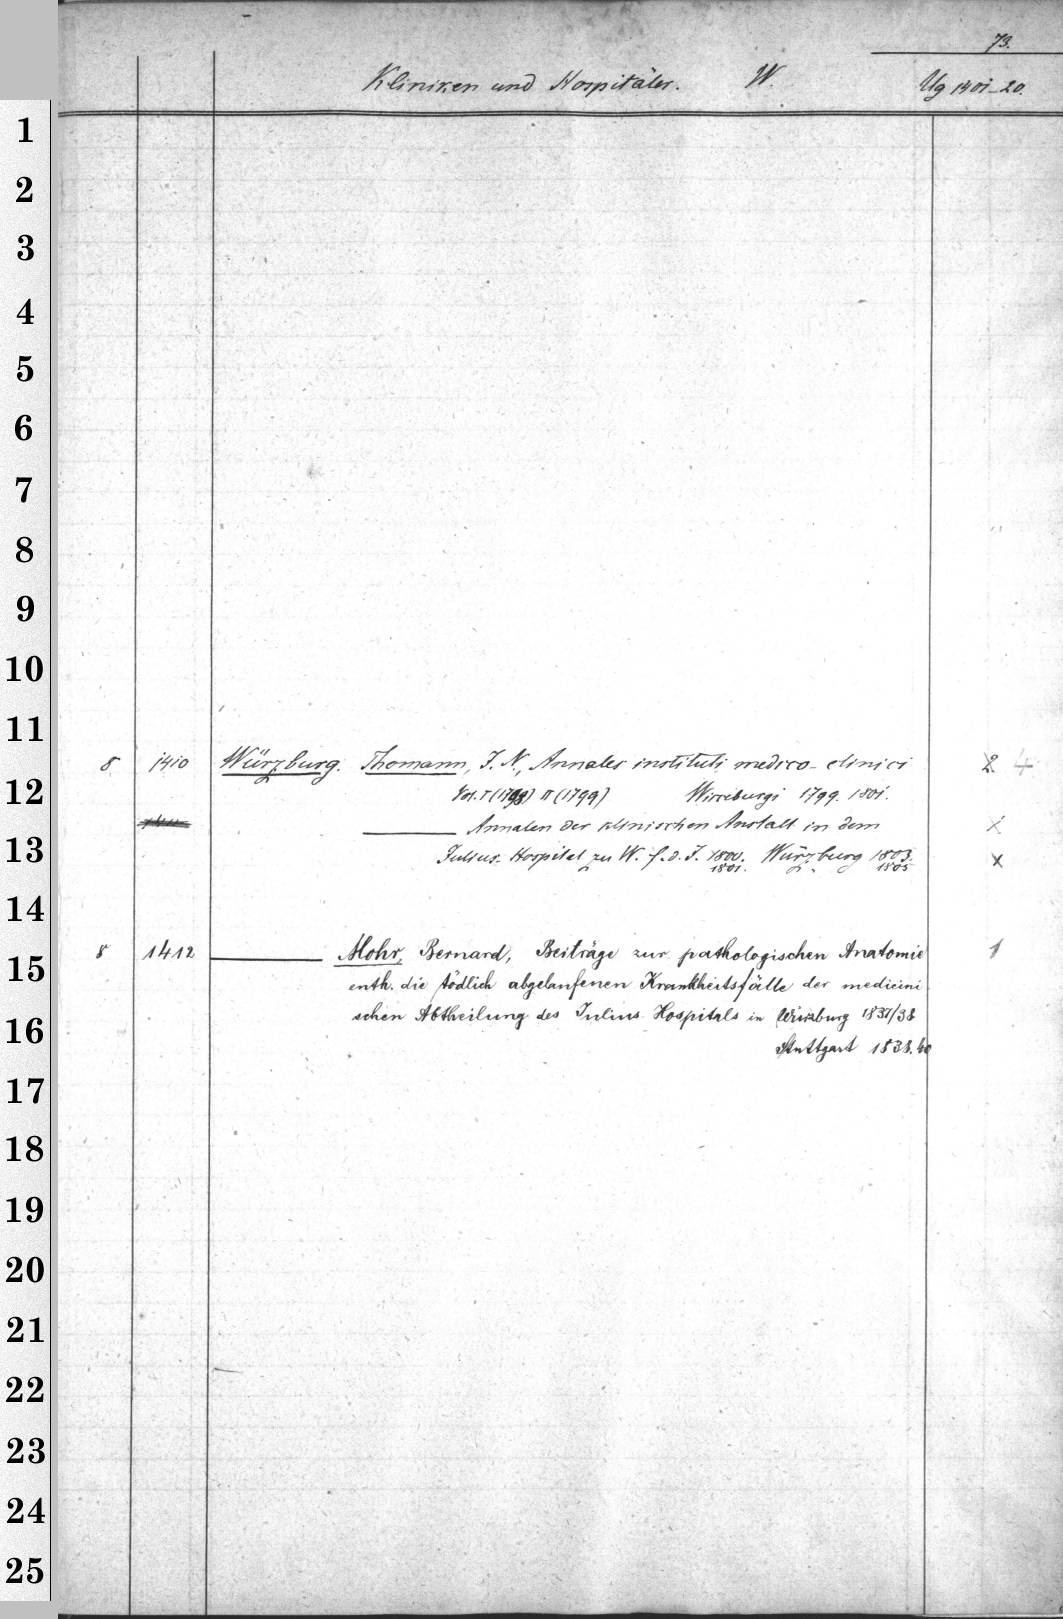 73.
Kliniken und Hospitäler. W. Ug 1401-20.
1
2
3
4
5
6
7
8
9
10
11
8 1410 Würzburg. Thomann, J. N., Annales instituti medico-clinici 2 4
12 Vol. I (1798) II (1799) Wirceburgi 1799. 1801.
——— Annalen der klinischen Anstalt in dem x
13 Julius-Hospital zu W. f. d. J. 1800. Würzburg 1803. x
1801. 1805
14
8 1412 ——— Mohr, Bernard, Beiträge zur pathologischen Anatomie 1
15
enth. die tödlich abgelaufenen Krankheitsfälle der medicini
schen Abtheilung des Julius-Hospitals in Würzburg 1837/38
16
Stuttgart 1838.40
17
18
19
20
21
22
23
24
25